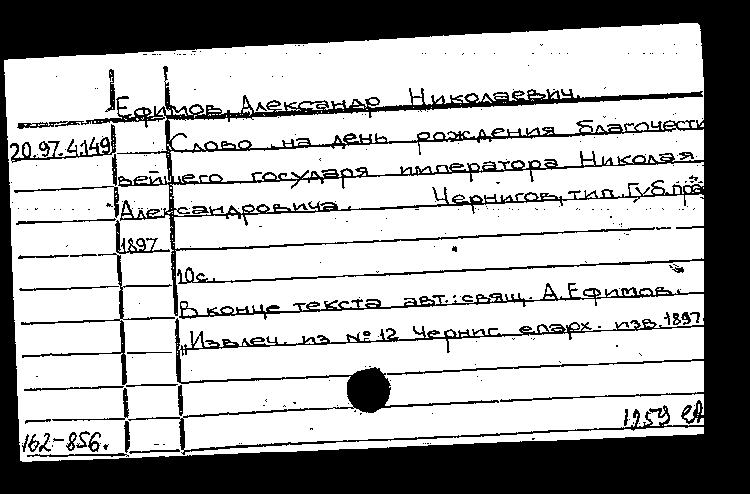 Ефимов, Александр Николаевич.
20.97.4.149 Слово на день рождения благочести
вейшего государя императора Николая
Александровича. Чернигов, тип. Губ. пра
1897
10с.
В конце текста авт.: свящ. А. Ефимов.
„Извлеч. из №12 Черниг. епарх. изв. 1897.
162-856.